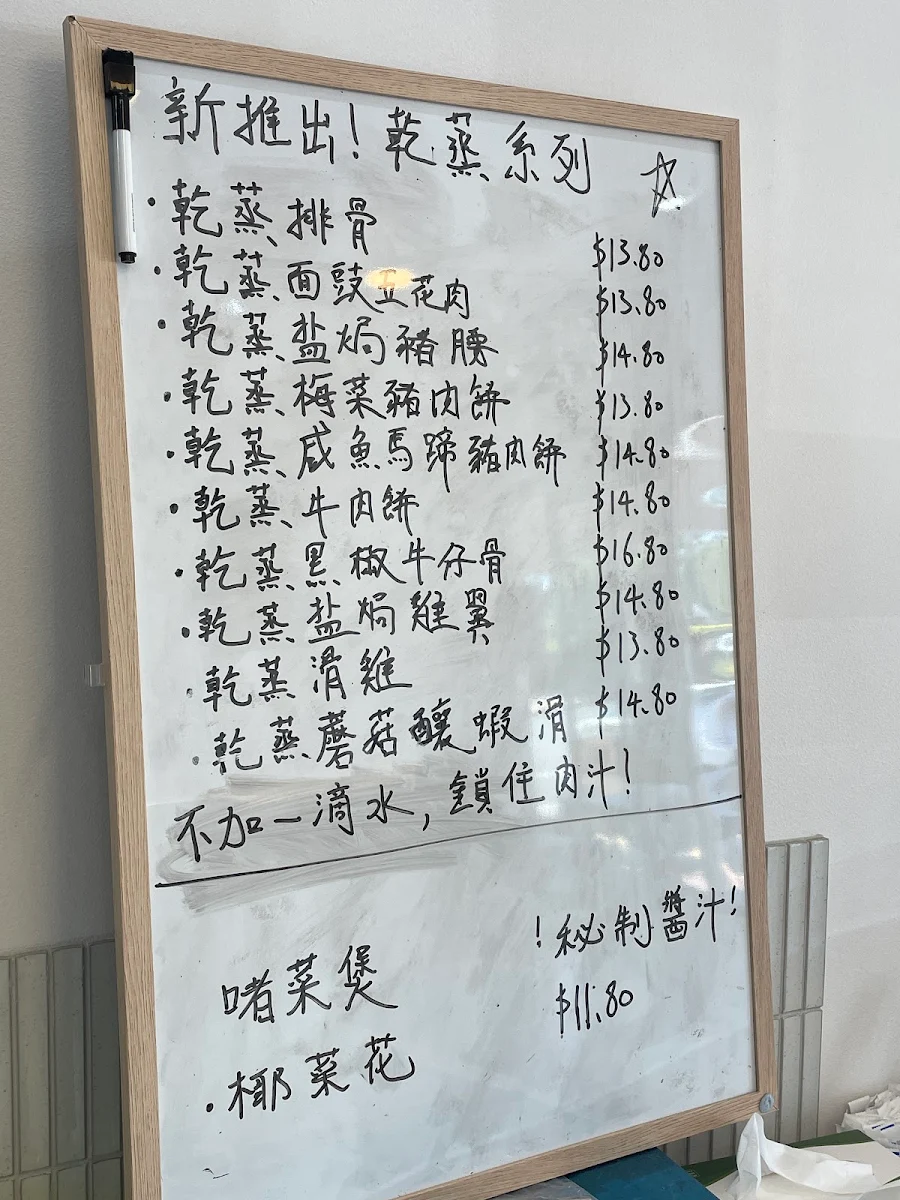 新推出！乾蒸系列 ☆
·乾蒸排骨 $13.80
·乾蒸面豉五花肉 $13.80
·乾蒸盐焗豬腰 $14.80
·乾蒸梅菜豬肉餅 $13.80
·乾蒸咸魚馬蹄豬肉餅 $14.80
·乾蒸牛肉餅 $14.80
·乾蒸黑椒牛仔骨 $16.80
·乾蒸盐焗雞翼 $14.80
·乾蒸滑雞 $13.80
·乾蒸蘑菇釀蝦滑 $14.80
不加一滴水，鎖住肉汁！
！秘制醬汁！
啫菜煲 $11.80
·椰菜花